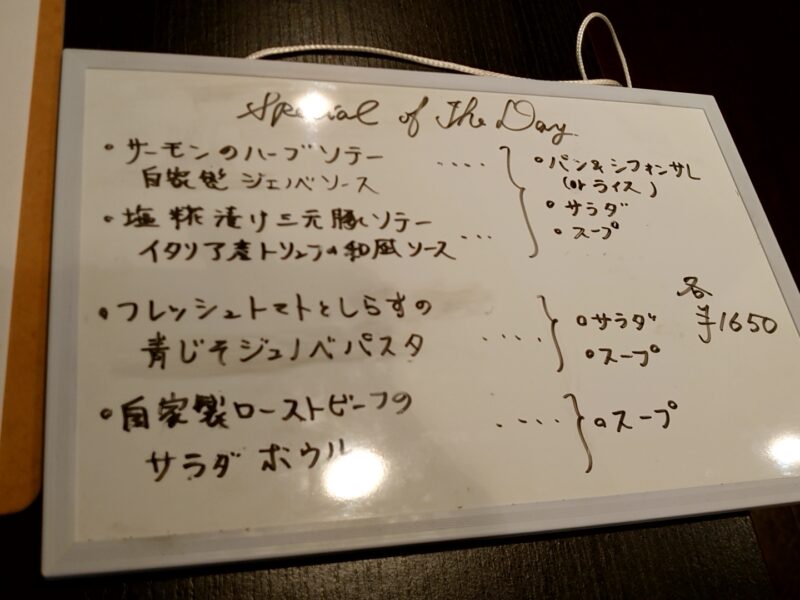 Special of The Day
• サーモンのハーブソテー ....
自家製 ジェノベソース
• 塩糀漬け三元豚ソテー
イタリア産トリュフの和風ソース ...
• パン&シフォンサレ
(orライス)
• サラダ
• スープ
• フレッシュトマトとしらすの
青じそジェノベパスタ ....
• サラダ
• スープ
各
¥1650
• 自家製ローストビーフの
サラダ ボウル ....
• スープ